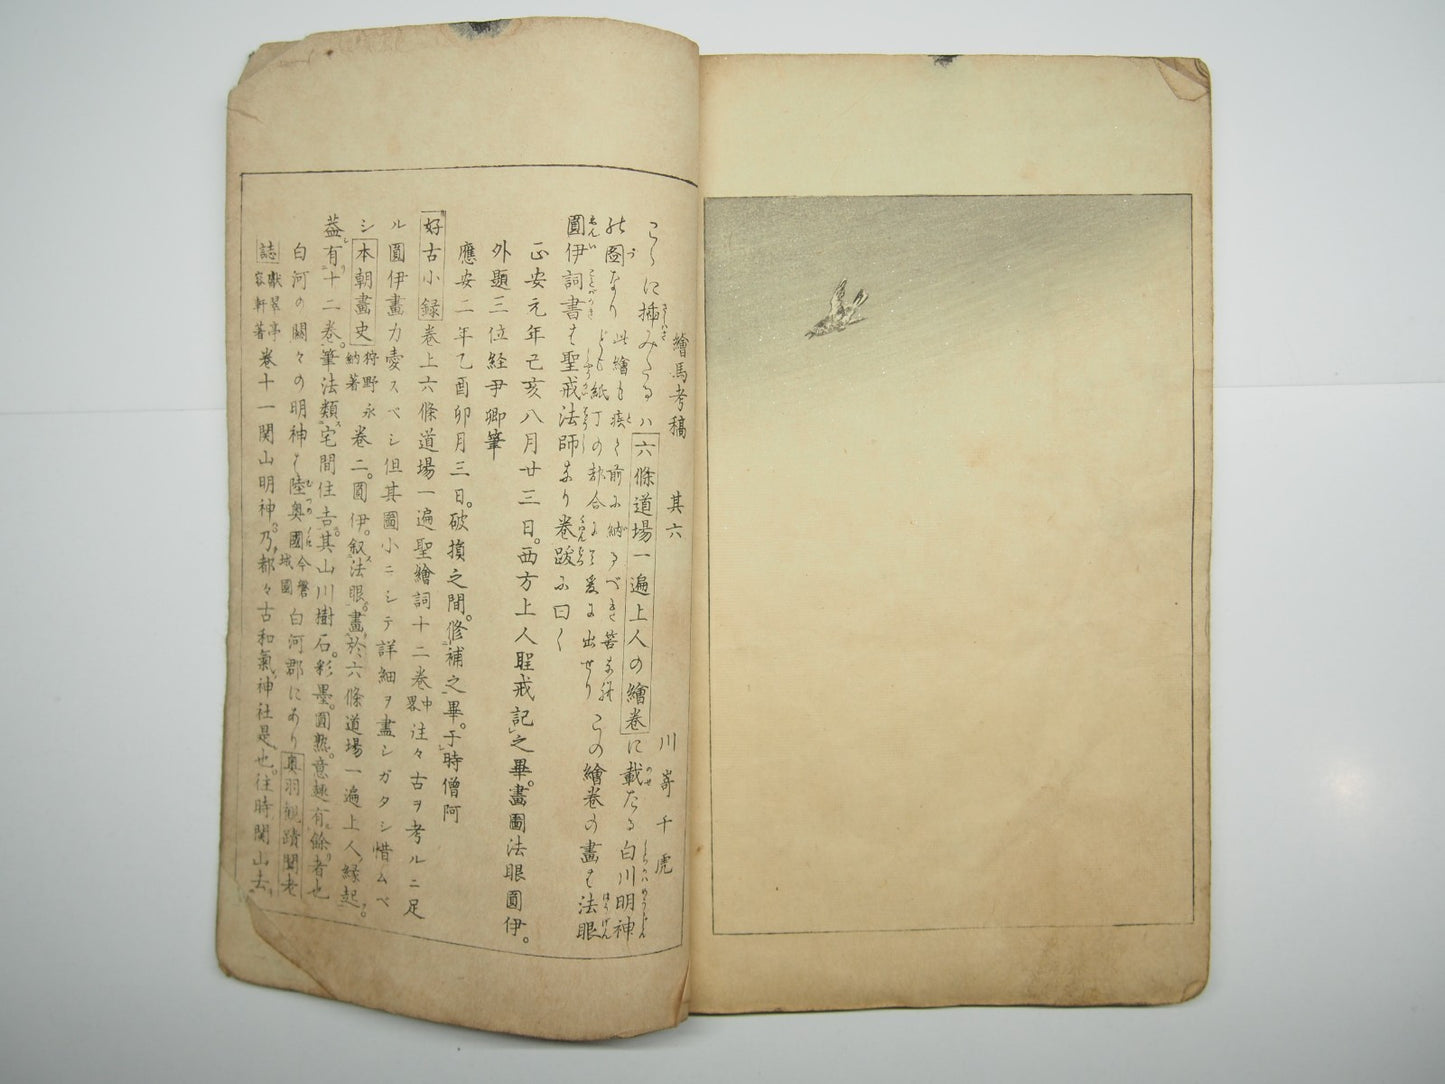 繪馬考稿 其六 川嵜千虎
こゝに挿みたるハ六條道場一遍上人の繪巻に載たる白川明神
の圖なり此繪も疾く前に納るべき筈なれども紙丁の都合により爰に出せりこの繪巻の畫は法眼
圓伊詞書は聖戒法師なり巻跋に曰く
正安元年己亥八月廿三日。西方上人聖戒記之畢。畫圖法眼圓伊。
外題三位経尹卿筆
應安二年乙酉卯月三日。破損之間。修補之畢。于時僧阿
好古小録巻上六條道場一遍聖繪詞十二巻中畧往々古ヲ考ルニ足
ル圓伊畫力愛スベシ但其圖小ニシテ詳細ヲ盡シガタシ惜ムベ
シ本朝畫史狩野永納著巻二。圓伊。叙法眼。畫於六條道場一遍上人縁起。
蓋有十二巻。筆法類宅間住吉。其山川樹石。彩墨。圓熟。意趣有餘者也
白河の關々の明神は陸奥國今磐城國白河郡にあり奥羽観蹟聞老
誌巻十一関山明神乃都々古和氣神社是也。往時関山去